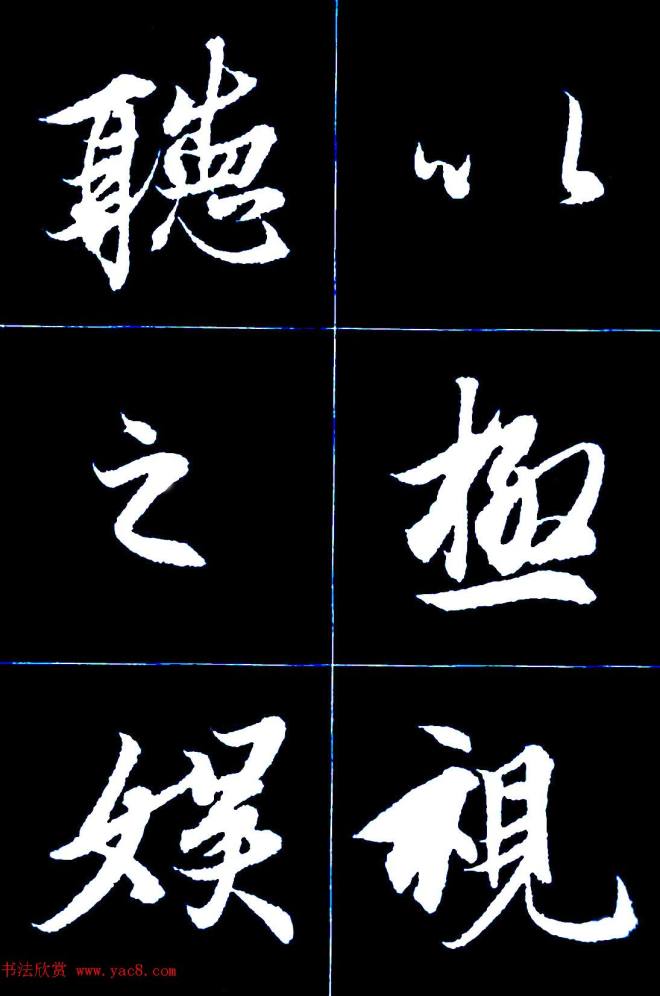 以極視
聽之娱
书法欣赏 www.yac8.com